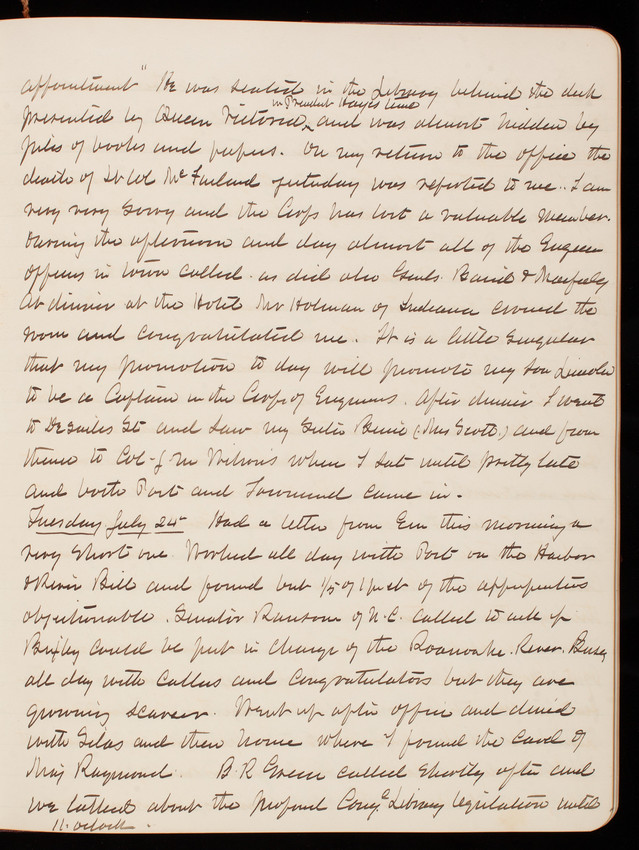 appointment" He was seated in the Library behind the desk
in President Hayes time
presented by Queen Victoria, and was almost hidden by
piles of books and papers. On my return to the office the
death of Lt Col McFarland yesterday was reported to me. I am
very very sorry and the Corps has lost a valuable member.
During the afternoon and day almost all of the Engineer
officers in town called as did also Genls. Baird &
At dinner at the Hotel Mr Holman of Indiana crossed the
room and congratulated me. It is a little singular
that my promotion to day will promote my son Lincoln
to be a Captain in the Corps of Engineers. After dinner I went
to DeSales St and saw my Sister (Mrs Scott) and from
thence to Col - J M Wilson's where I sat until pretty late
and both Post and Townsend came in -
Tuesday July 24 - Had a letter from Em this morning a
very short one. Worked all day with Post on the Harbor
& River Bill and found but 1/5 of 1 pr ct of the appropriations
objectionable. Senator Ransom of N.C. called to ask if
Bixby could be put in charge of the Roanoake River. Busy
all day with callers and congratulators but they are
growing scarcer. Went up after office and dined
with Silas and then home where I found the card of
Maj Raymond. B. R. Green called shortly after and
we talked about the proposed Congl Library legislation until
11. oclock.